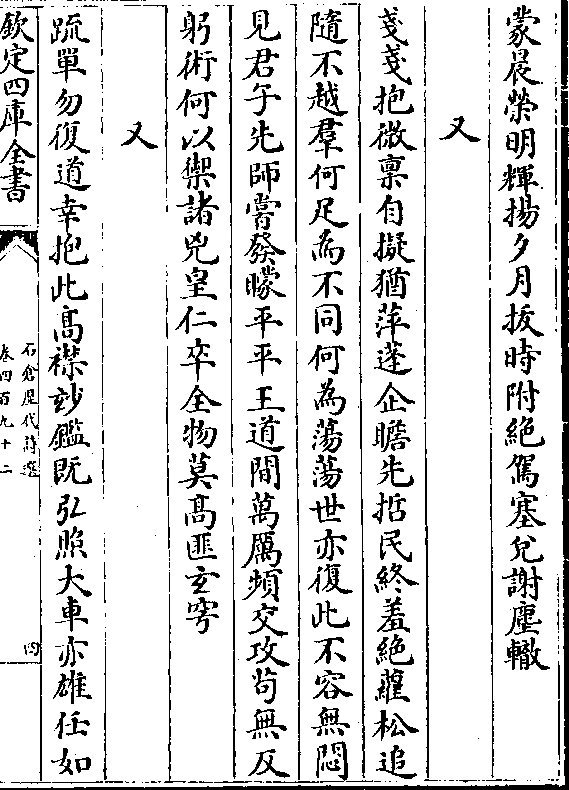 蒙晨榮明輝揚夕月拔時附絶駕塞兌謝塵轍
又
戔戔抱微稟自擬猶萍蓬企瞻先括民終羞絶蘿松追
隨不越羣何足為不同何為蕩蕩世亦復此不容無悶
見君子先師嘗發矇平平王道間萬厲頻交攻茍無反
躬術何以禦諸兇皇仁卒全物莫髙匪𤣥穹
又
疏單勿復道幸抱此髙襟妙鑑既弘照大車亦雄任如
欽定四庫全書
石倉歷代詩選
卷四百九十二
四